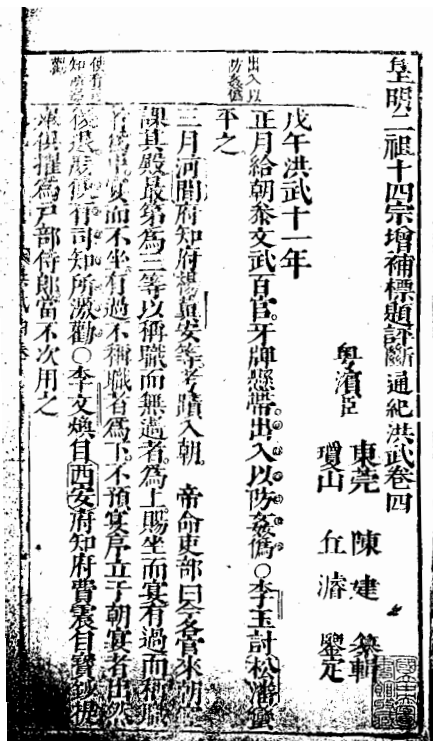 皇明二祖十四宗增補標題評斷通紀洪武卷四
粵濱臣
東莞 陳建 纂輯
瓊山 丘濬 鑒定
戊午洪武十一年
出入以
防姦僞
正月給朝參文武百官牙牌懸帶出入以防姦僞○李玉討松潘
平之
三月河間府知府楊冀安等考蹟入朝 帝命吏部曰今各官來朝
課其殿最第爲三等以稱職而無過者爲上賜坐而宴有過而稱職
者爲中宴而不坐有過不稱職者爲下不預宴序立于朝宴者出然
使有司
知所激
勸
後退庶使有司知所激勸○李文煥自西安府知府費震自寶鈔提
舉俱擢爲戶部侍郎當不次用之